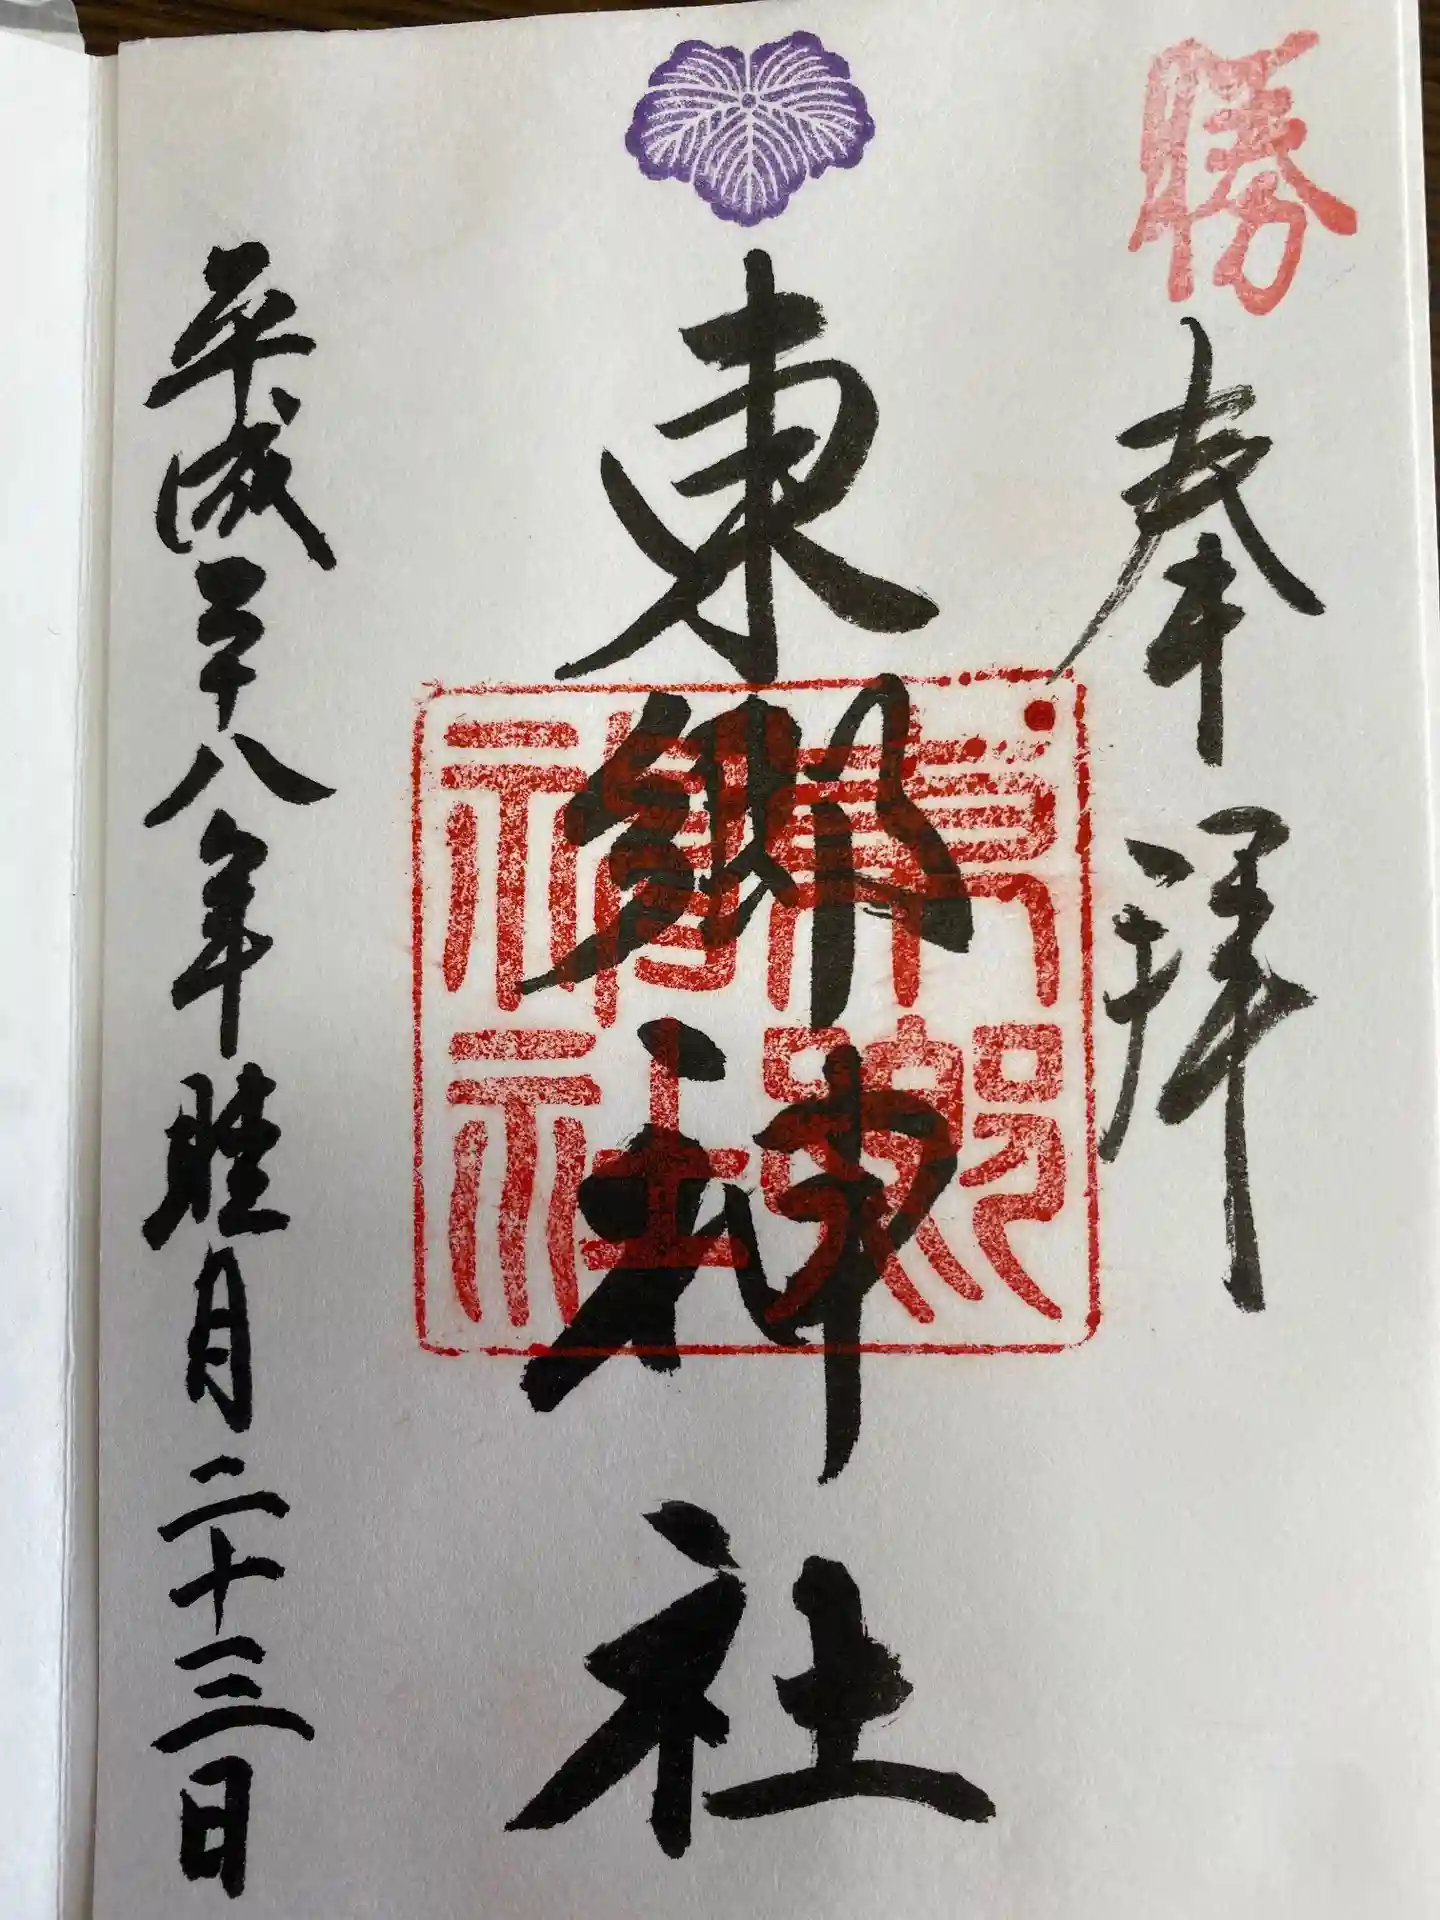 勝
奉拝
東郷神社
東郷神社
平成二十八年睦月二十三日